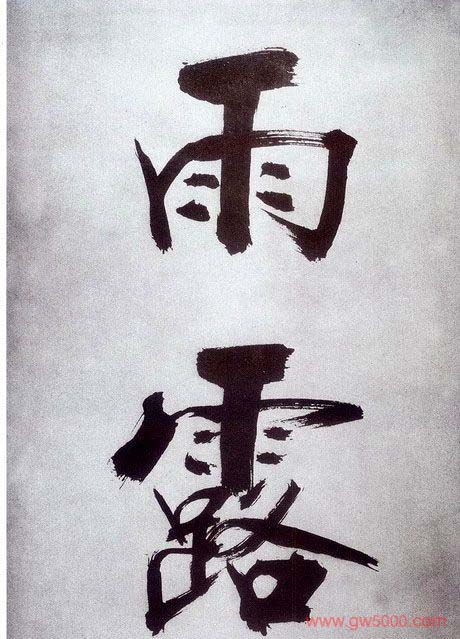 雨
露
www.gw5000.com